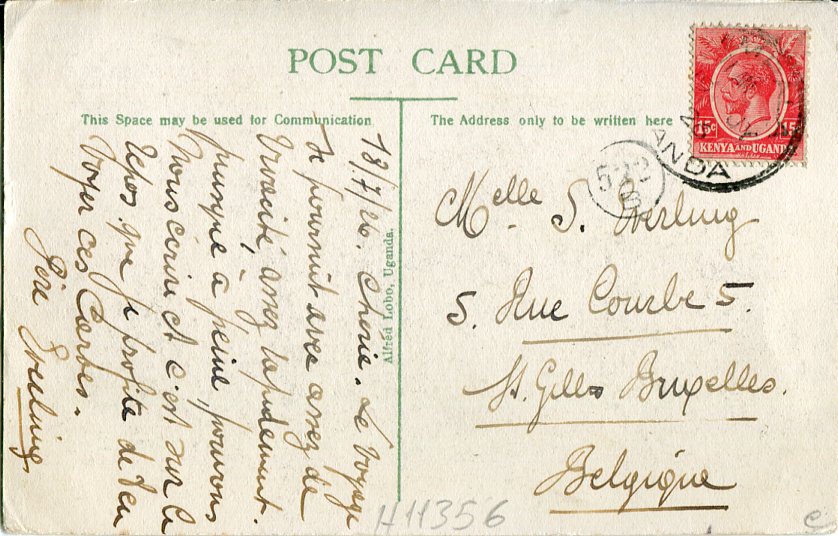 POST CARD
This Space may be used for Communication
The Address only to be written here
18/7/26. Cherie. Le Voyage
se poursuit avec assez de
vivacité, assez rapidement.
puisque à peine, pouvons
Nous écrire et c'est sur la
que je profite de t'en
voyer ces Cartes.
Père
Alfred Lobo, Uganda.
Melle S.
5. Rue Courbe 5.
St. Gilles Bruxelles.
Belgique
15c 15c
KENYA AND UGANDA
ANDA
522
H11356